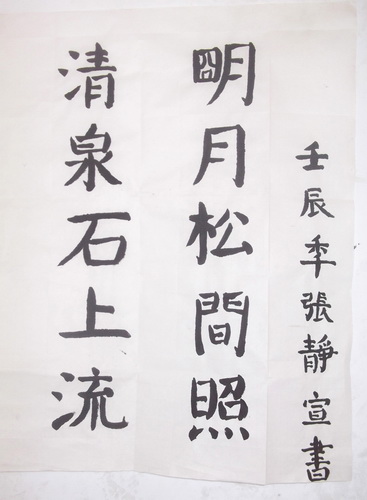 壬辰年張靜宣書
明月松間照
清泉石上流